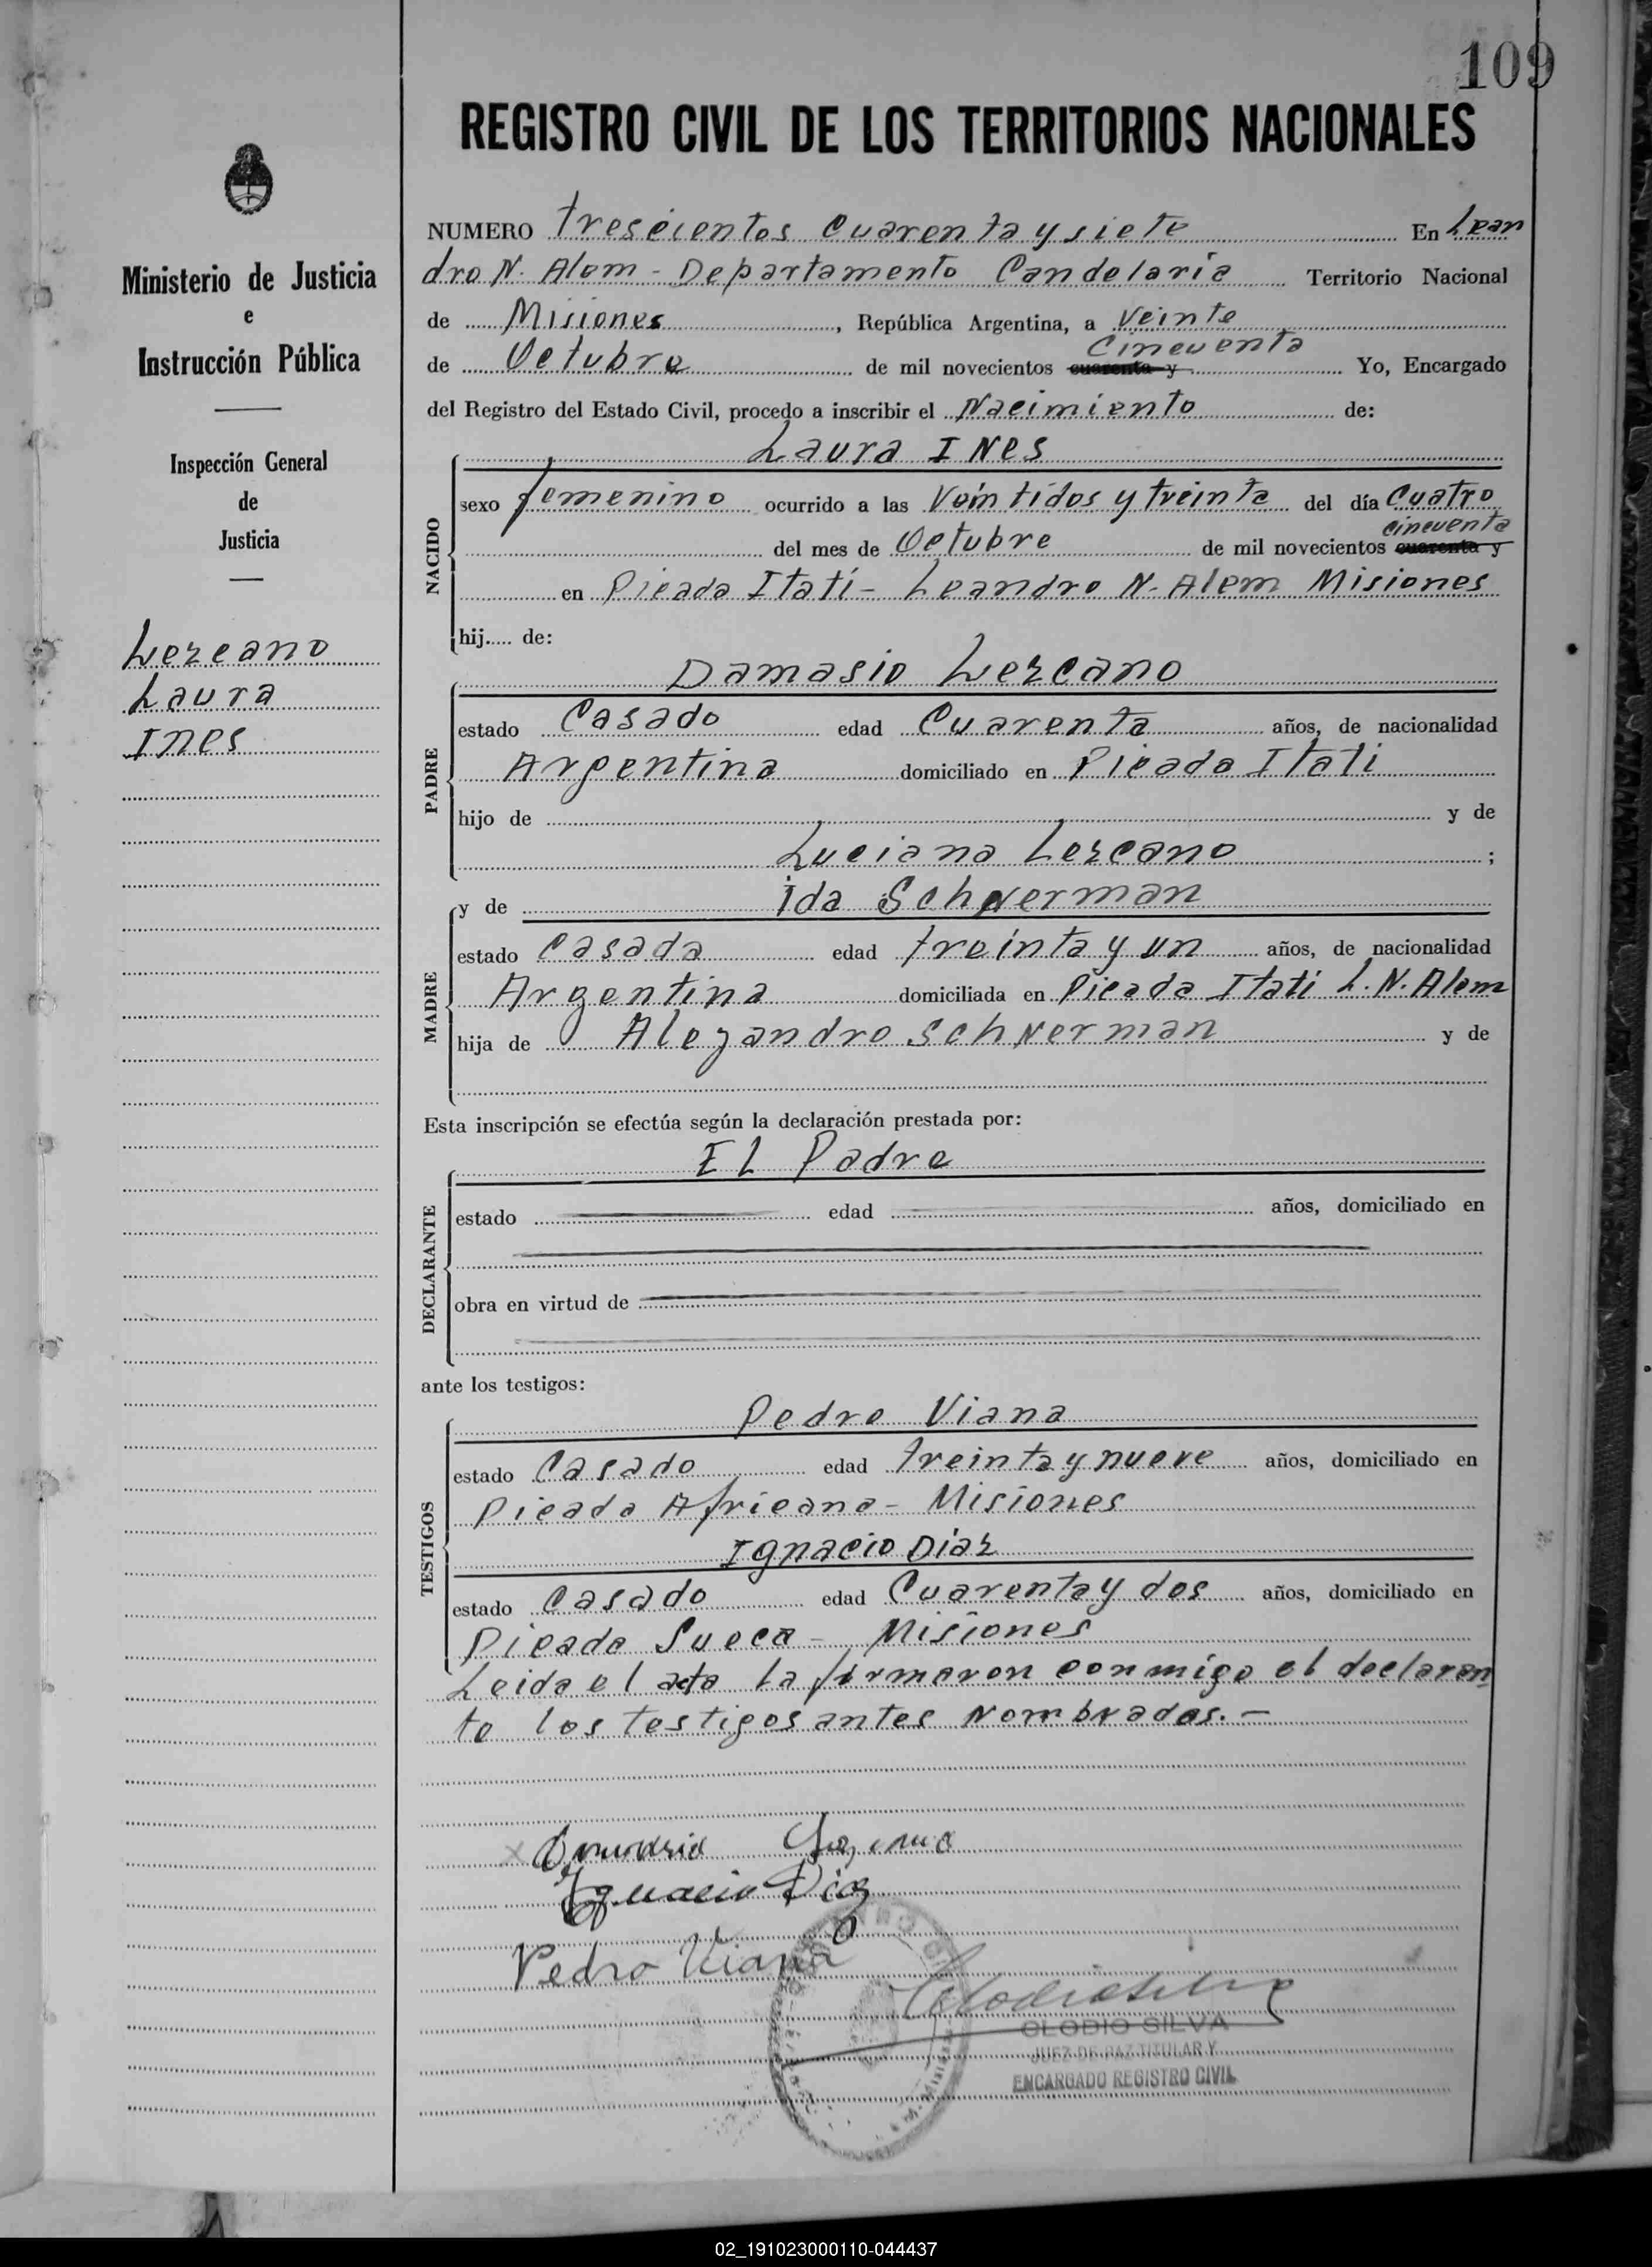 109
REGISTRO CIVIL DE LOS TERRITORIOS NACIONALES
Ministerio de Justicia
e
Instrucción Pública
Inspección General
de
Justicia
Lezcano
Laura
Ines
NUMERO trescientos cuarenta y siete En Lean
dro N. Alem - Departamento Candelaria Territorio Nacional
de Misiones, República Argentina, a veinte
cincuenta
de Octubre de mil novecientos cuarenta y Yo, Encargado
del Registro del Estado Civil, procedo a inscribir el Nacimiento de:
Laura INes
NACIDO
sexo femenino ocurrido a las Veintidos y treinta del día Cuatro
cincuenta
del mes de Octubre de mil novecientos cuarenta y
en Picada Itatí - Leandro N. Alem Misiones
hij..... de:
Damasio Lezcano
PADRE
estado Casado edad Cuarenta años, de nacionalidad
Argentina domiciliado en Picada Itati
hijo de y de
Luciana Lezcano ;
y de Ida Schverman
MADRE
estado casada edad treinta y un años, de nacionalidad
Argentina domiciliada en Picada Itati L. N. Alem
hija de Alejandro Schverman y de
Esta inscripción se efectúa según la declaración prestada por:
EL Padre
DECLARANTE
estado edad años, domiciliado en
obra en virtud de
ante los testigos:
Pedro Viana
TESTIGOS
estado Casado edad treinta y nueve años, domiciliado en
Picada Africana - Misiones
Ignacio Diaz
estado Casado edad Cuarenta y dos años, domiciliado en
Picada Sueca - Misiones
Leida el acta la firmaron conmigo el declaran
te los testigos antes Nombrados. -
Ignacio Diaz
Pedro Viana
OLODIO SILVA
JUEZ DE PAZ TITULAR Y
ENCARGADO REGISTRO CIVIL
02_191023000110-044437